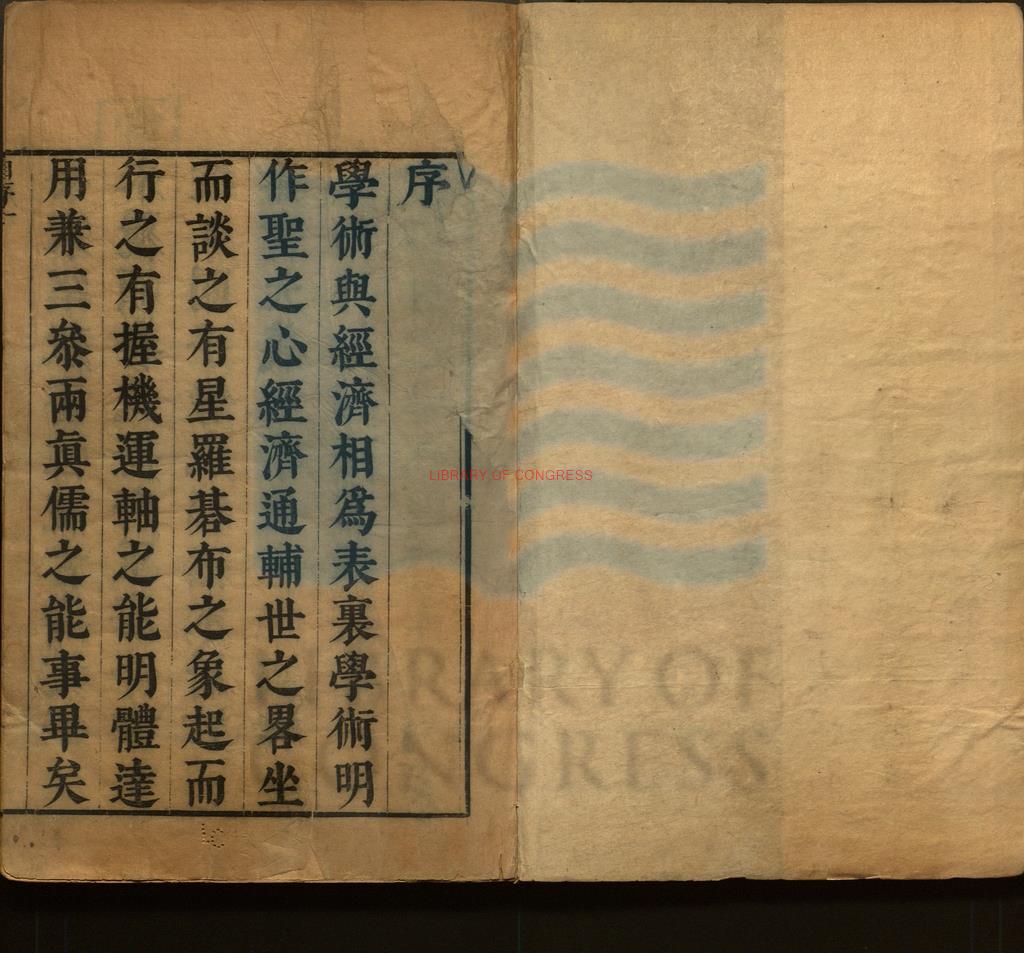 序
學術與經濟相爲表裏學術明
作聖之心經濟通輔世之畧坐
而談之有星羅碁布之象起而
行之有握機運軸之能明體達
用兼三叅兩眞儒之能事畢矣
LIBRARY OF CONGRESS